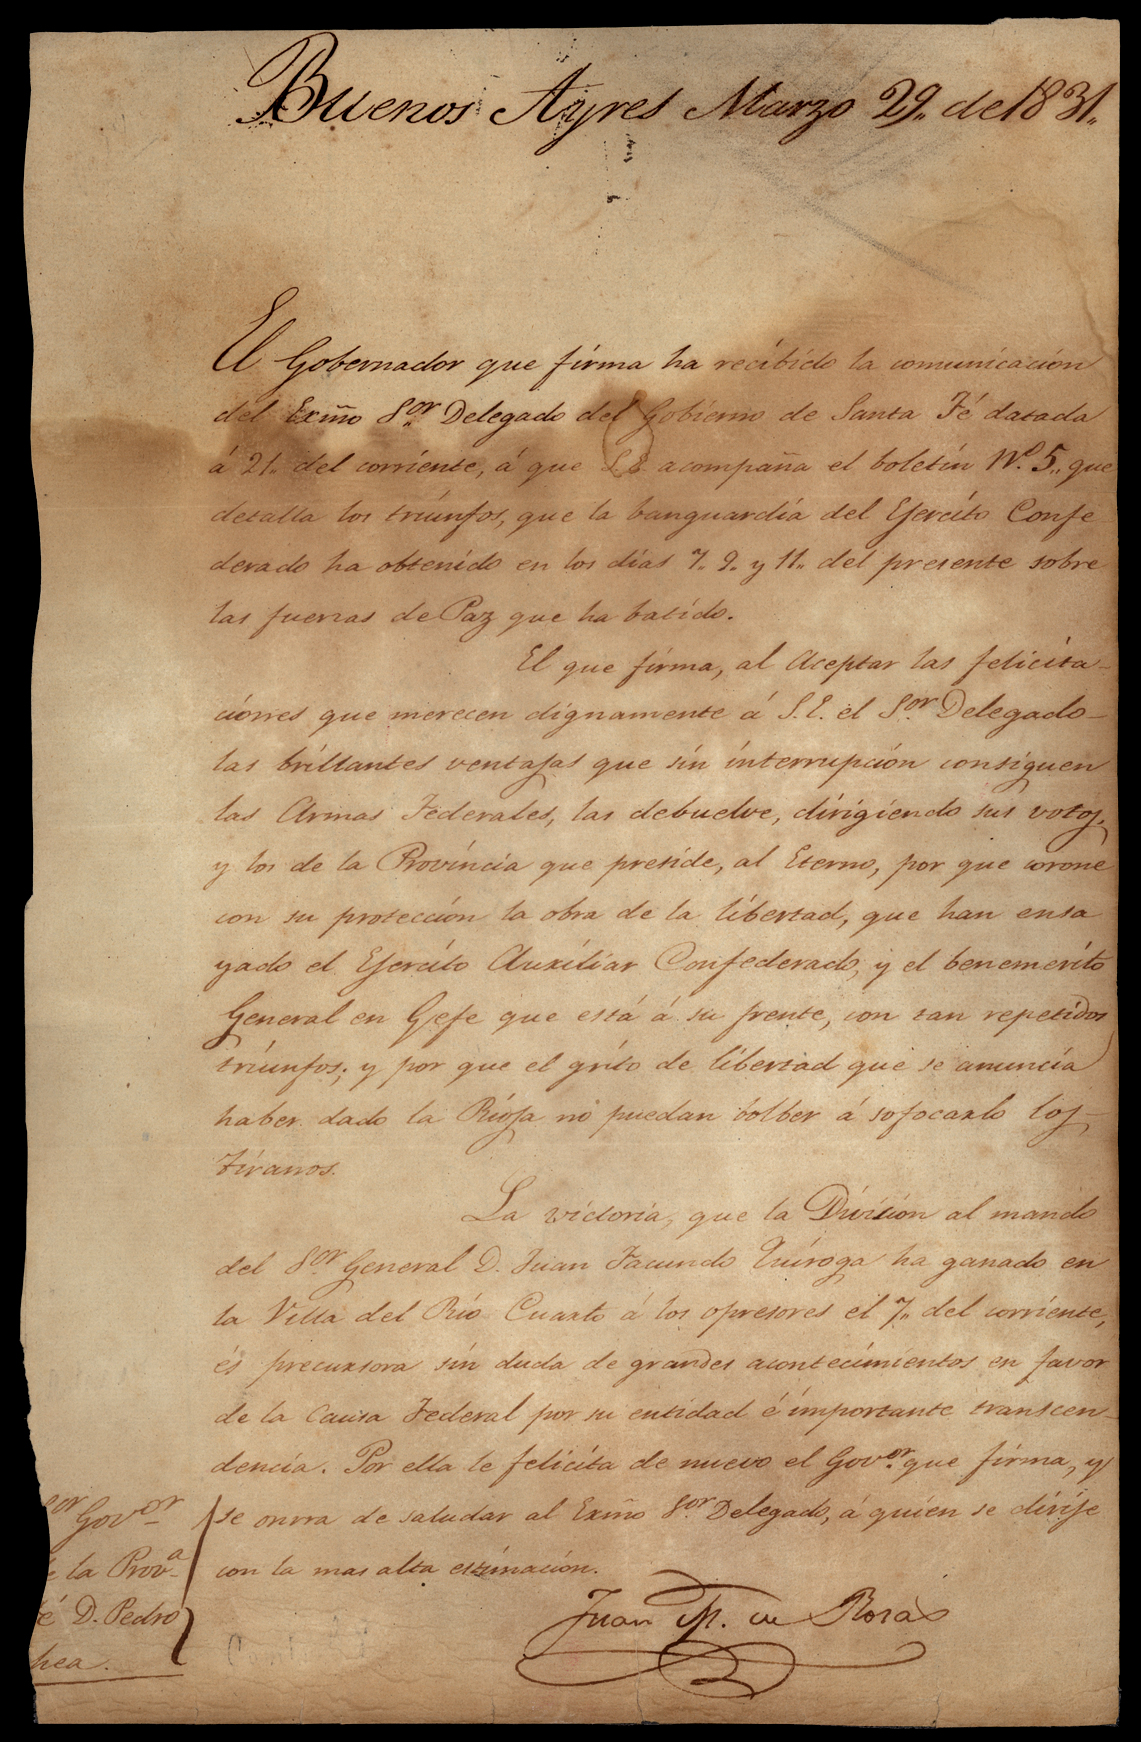 Buenos Ayres Marzo 29,, de 1831,,
El Gobernador que firma ha recibido la comunicación
del Exmo Sor Delegado del Gobierno de Santa Fé datada
á 21,, del corriente, á que S.E. acompaña el boletin No. 5,, que
detalla los triunfos, que la banguardia del Ejercito Confe
derado ha obtenido en los dias 7,, 9,, y 11,, del presente sobre
las fuerzas de Paz que ha batido.
El que firma, al Aceptar las felicita-
ciones que merecen dignamente á S.E. el Sor Delegado
las brillantes ventajas que sin interrupción consiguen
las Armas Federales, las debuelve, dirigiendo sus votos,
y los de la Provincia que preside, al Eterno, por que corone
con su protección la obra de la libertad, que han ensa
yado el Ejercito Auxiliar Confederado, y el benemérito
General en Gefe que está á su frente, con tan repetidos
triunfos; y por que el grito de libertad que se anuncia
haber dado la Rioja no puedan bolber á sofocarlo los
Tiranos.
La victoria, que la División al mando
del Sor General D. Juan Facundo Quiroga ha ganado en
la Villa del Rio Cuarto á los opresores el 7,, del corriente,
és precursora sin duda de grandes acontecimientos en favor
de la Causa Federal por su entidad é importante transcen-
dencia. Por ella le felicita de nuevo el Govor. que firma, y
se onrra de saludar al Exmo Sor Delegado, á quien se dirije
con la mas alta estimación.
Juan M. de Rosas
or Govor
e la Prova.
é D. Pedro
hea.